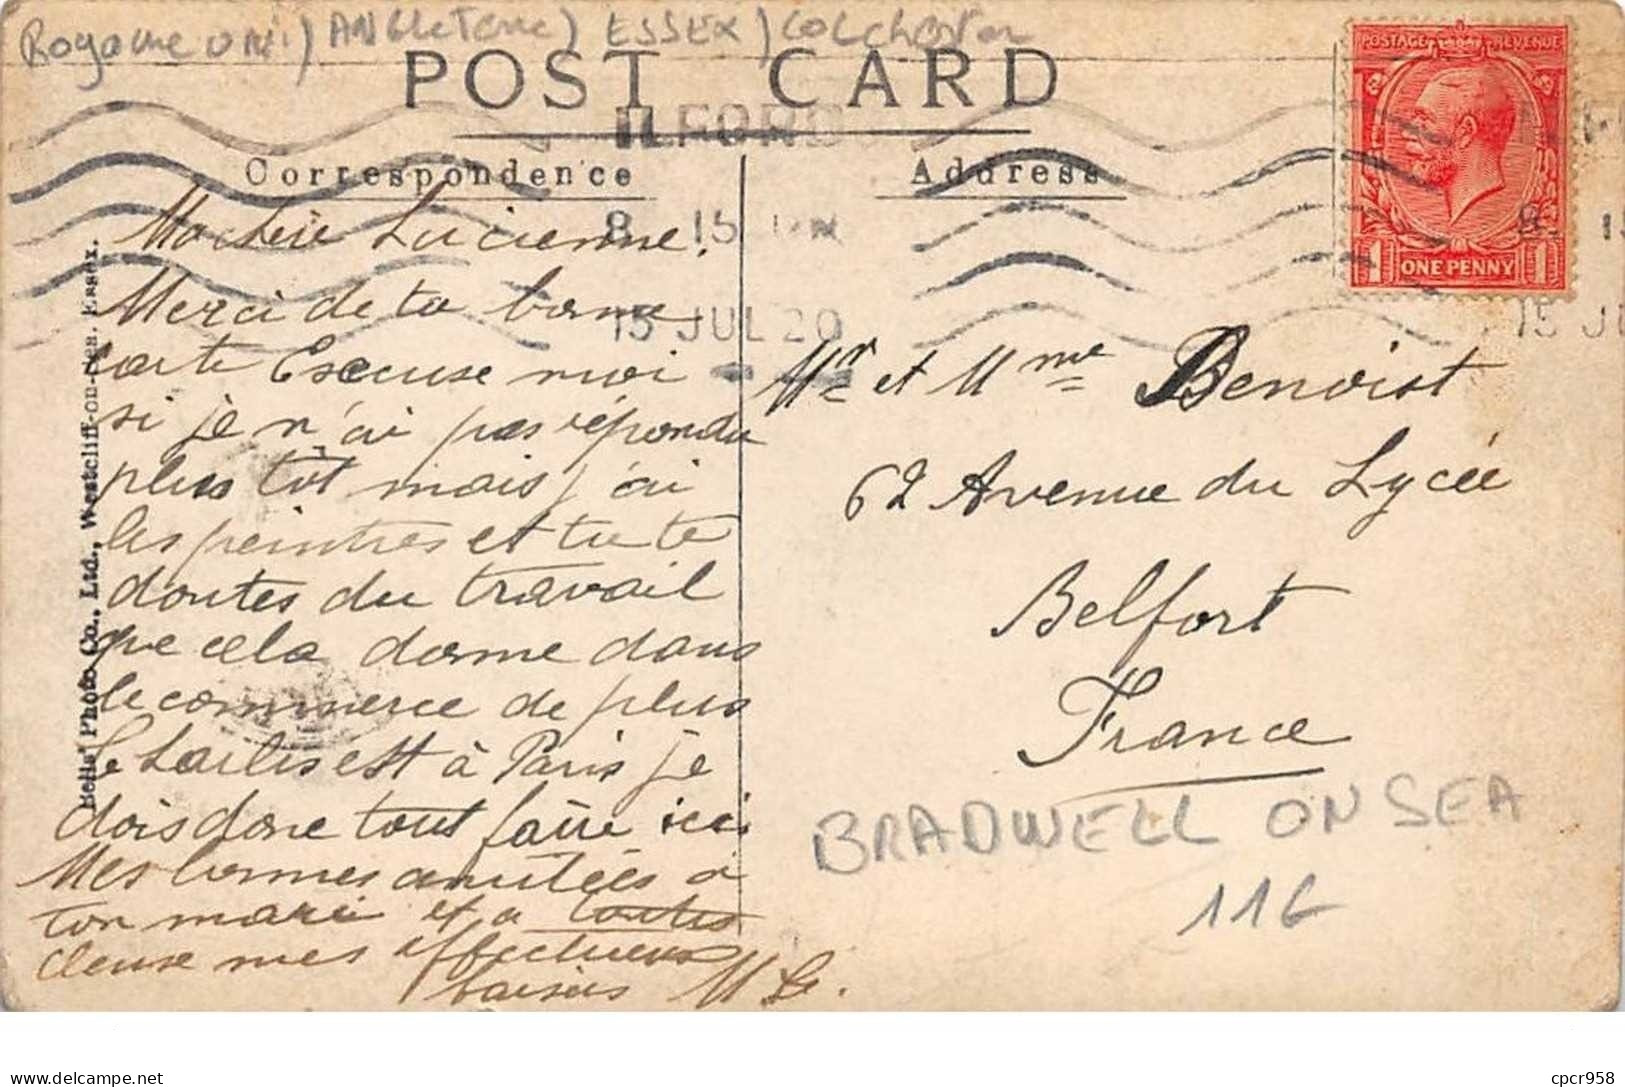 Royaume uni) ANGLETERRE) ESSEX) COLCHester
POST CARD
ILFORD
Correspondence
Address
8 15
15 JUL 20
POSTAGE REVENUE
1 ONE PENNY 1
8. 15
15 JU
Bells' Photo Co., Ltd., Westcliff-on-Sea. Essex.
Ma chère Lucienne.
Merci de ta bonne
carte Excuse moi
si je n'ai pas répondu
plus tôt mais j'ai
les peintres et tu te
doutes du travail
que cela donne dans
le commerce de plus
Charles est à Paris je
dois donc tout faire ici
Mes bonnes amitiés à
ton mari et a toutes
deuse mes affectueux
baisers M
Mr et Mme Benoist
62 Avenue du Lycée
Belfort
France
BRADWELL ON SEA
116
cpcr958